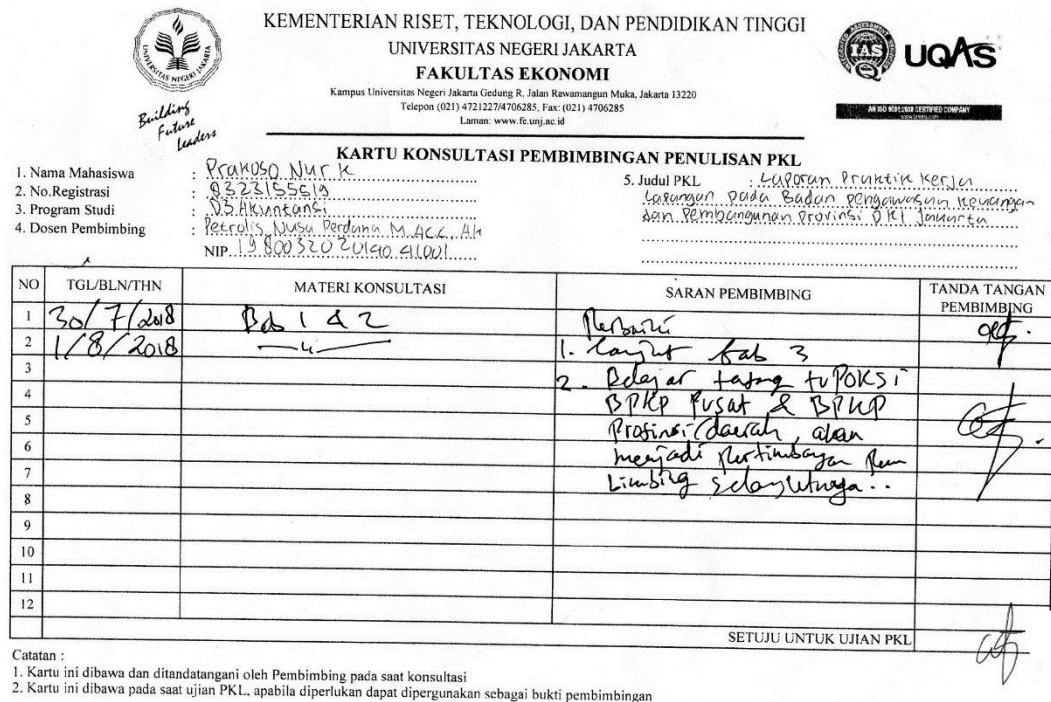 KEMENTERIAN RISET, TEKNOLOGI, DAN PENDIDIKAN TINGGI
UNIVERSITAS NEGERI JAKARTA
FAKULTAS EKONOMI
Kampus Universitas Negeri Jakarta Gedung R, Jalan Rawamangun Muka, Jakarta 13220
Telepon (021) 4721227/4706285, Fax: (021) 4706285
Laman: www.fe.unj.ac.id
UNIVERSITAS NEGERI JAKARTA
Building
Future
Leaders
IAS
UQAS
AN ISO 9001:2008 CERTIFIED COMPANY
KARTU KONSULTASI PEMBIMBINGAN PENULISAN PKL
1. Nama Mahasiswa : Prakoso Nur K
2. No.Registrasi : 8323155519
3. Program Studi : D3 Akuntansi
4. Dosen Pembimbing : Petrolis Nusa Perdana M.Acc, Ak
NIP. 19800320 201404 1001
5. Judul PKL : Laporan Praktik Kerja
Lapangan pada Badan pengawasan Keuangan
dan Pembangunan Provinsi DKI Jakarta
NO TGL/BLN/THN MATERI KONSULTASI SARAN PEMBIMBING TANDA TANGAN PEMBIMBING
1 30/7/2018 Bab 1 & 2 Perbaiki
2 1/8/2018 1. Lanjut bab 3
3 2. Belajar tentang tuPOKSi
4 BPKP Pusat & BPKP
5 Profinsi/daerah, akan
6 menjadi pertimbangan Pem
7 bimbing selanjutnya..
8
9
10
11
12
SETUJU UNTUK UJIAN PKL
Catatan :
1. Kartu ini dibawa dan ditandatangani oleh Pembimbing pada saat konsultasi
2. Kartu ini dibawa pada saat ujian PKL, apabila diperlukan dapat dipergunakan sebagai bukti pembimbingan